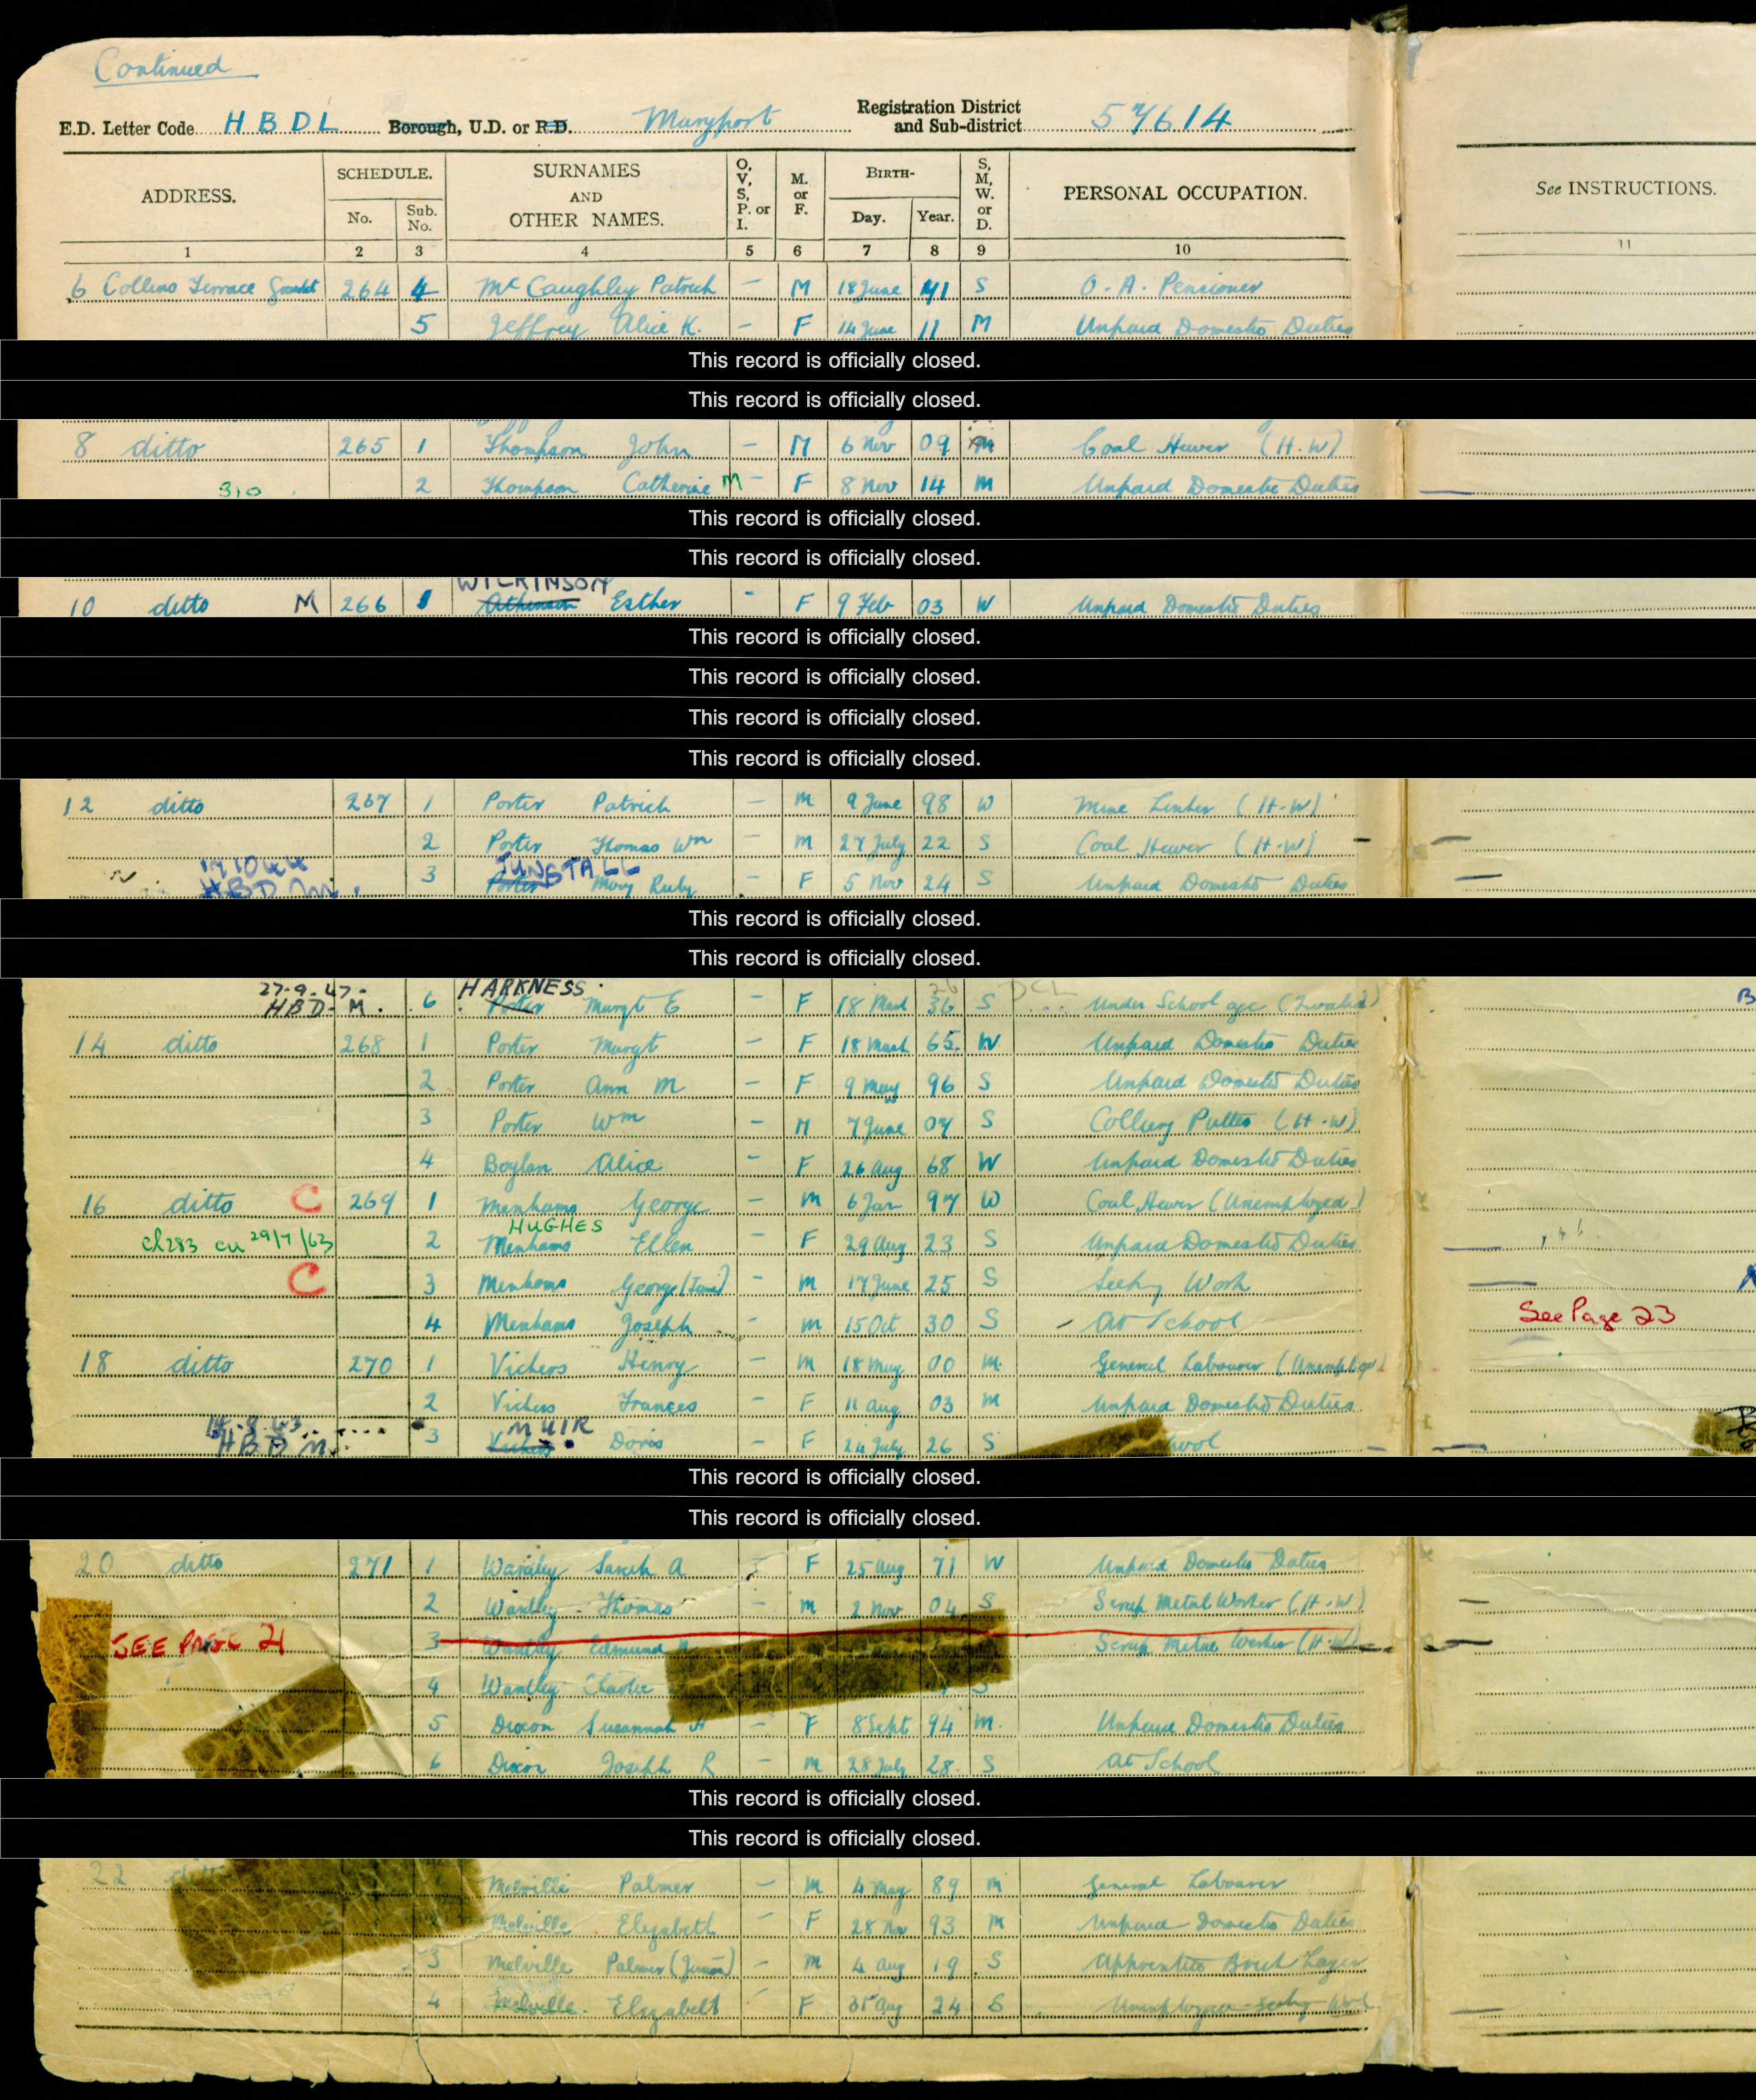 Continued
E.D. Letter Code HBDL Borough, U.D. or R.D. Maryport Registration District and Sub-district 576 14
ADDRESS. SCHEDULE. No. Sub. No. SURNAMES AND OTHER NAMES. O, V, S, P. or I. M. or F. BIRTH- Day. Year. S, M, W. or D. PERSONAL OCCUPATION. See INSTRUCTIONS.
1 2 3 4 5 6 7 8 9 10 11
6 Collins Terrace 264 4 McCaughley Patrick — M 18 June S O. A. Pensioner
5 Jeffrey Alice K. — F 14 June 11 M Unpaid Domestic Duties
This record is officially closed.
This record is officially closed.
8 ditto 265 1 Thompson John — M 6 Nov 09 M Coal Hewer (H.W)
2 Thompson Catherine M — F 8 Nov 14 M Unpaid Domestic Duties
This record is officially closed.
This record is officially closed.
WILKINSON
10 ditto M 266 1 Atkinson Esther - F 9 Feb 03 W Unpaid Domestic Duties
This record is officially closed.
This record is officially closed.
This record is officially closed.
This record is officially closed.
12 ditto 267 1 Porter Patrick — M 9 June 98 W Mine (H.W)
2 Porter Thomas Wm — M 27 July 22 S Coal Hewer (H.W)
TUNSTALL
HBD M. 3 Porter Mary Ruby — F 5 Nov 24 S Unpaid Domestic Duties
This record is officially closed.
This record is officially closed.
27-9-47- HARKNESS
HBD-M. 6 Porter Margt E — F 18 Mar 36 S Under School age
14 ditto 268 1 Porter Margt — F 18 March 65 W Unpaid Domestic Duties
2 Porter Ann M — F 9 May 96 S Unpaid Domestic Duties
3 Porter Wm — M 7 June 07 S Colliery Putter (H.W)
4 Boylan Alice — F 26 Aug 68 W Unpaid Domestic Duties
16 ditto C 269 1 Menhams George — M 6 Jan 97 W Coal Hewer (Unemployed)
HUGHES
29/7/63 2 Menhams Ellen — F 29 Aug 23 S Unpaid Domestic Duties
C 3 Menhams George (Junr) — M 17 June 25 S Seeking Work
4 Menhams Joseph M 15 Oct 30 S At School See Page 23
18 ditto 270 1 Vickers Henry — M 18 May 00 M. General Labourer (Unemployed)
2 Vickers Frances — F 11 Aug 03 M Unpaid Domestic Duties
MUIR
HBD M. 3 Vickers Doris — F 24 July 26 S
This record is officially closed.
This record is officially closed.
20 ditto 271 1 Wardley Sarah A — F 25 Aug 71 W Unpaid Domestic Duties
2 Wardley Thomas — M 2 Nov 04 S Scrap Metal Worker (H.W)
SEE PAGE 21 3 Wardley Edmund Scrap Metal Worker (H.W)
4 Wardley Charlie S
5 Dixon Susannah H — F 8 Sept 94 M. Unpaid Domestic Duties
6 Dixon Joseph R — M 28 July 28 S At School
This record is officially closed.
This record is officially closed.
22 Melville Palmer — M 4 May 89 M General Labourer
Melville Elizabeth — F 28 Nov 93 M Unpaid Domestic Duties
3 Melville Palmer (Junior) — M 4 Aug 19 S Apprentice Brick Layer
4 Melville Elizabeth F Aug 24 S Unemployed Seeking Work